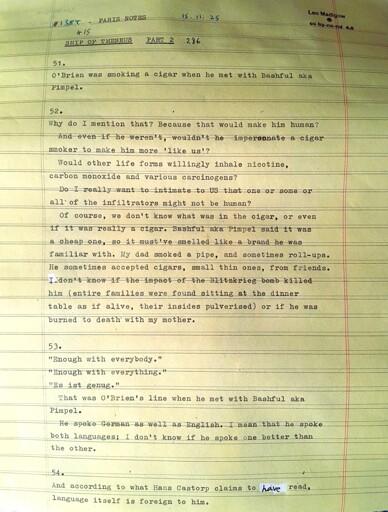 #1385 - PARIS NOTES 15.11.25
Leo Madigan
cc by-nc-nd 4.0
415
SHIP OF THESEUS PART 2 286
51.
O'Brien was smoking a cigar when he met with Bashful aka
Pimpel.
52.
Why do I mention that? Because that would make him human?
And even if he weren't, wouldn't he impersonate a cigar
smoker to make him more 'like us'?
Would other life forms willingly inhale nicotine,
carbon monoxide and various carcinogens?
Do I really want to intimate to US that one or some or
all of the infiltrators might not be human?
Of course, we don't know what was in the cigar, or even
if it was really a cigar. Bashful aka Pimpel said it was
a cheap one, so it must've smelled like a brand he was
familiar with. My dad smoked a pipe, and sometimes roll-ups.
He sometimes accepted cigars, small thin ones, from friends.
I don't know if the impact of the Blitzkrieg bomb killed
him (entire families were found sitting at the dinner
table as if alive, their insides pulverised) or if he was
burned to death with my mother.
53.
"Enough with everybody."
"Enough with everything."
"Es ist genug."
That was O'Brien's line when he met with Bashful aka
Pimpel.
He spoke German as well as English. I mean that he spoke
both languages; I don't know if he spoke one better than
the other.
54.
And according to what Hans Castorp claims to have read,
language itself is foreign to him.